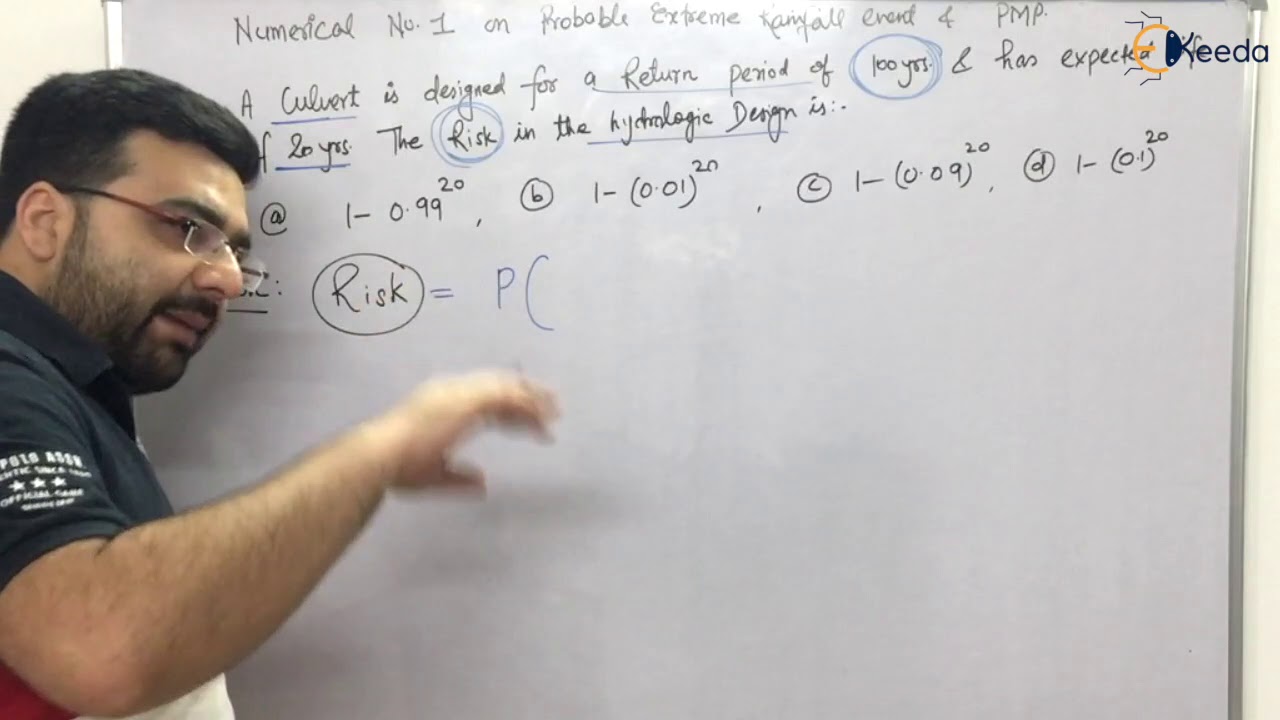 Numerical No. 1 on Probable Extreme Rainfall event & PMP.
Keeda
A Culvert is designed for a Return period of 100 yrs. & has expected
20 yrs. The Risk in the hydrologic Design is:.
ⓐ 1- 0.99^20, ⓑ 1-(0.01)^20, ⓒ 1-(0.09)^20, ⓓ 1-(0.1)^20
Risk = P(
POLO ASSN.
OFFICIAL